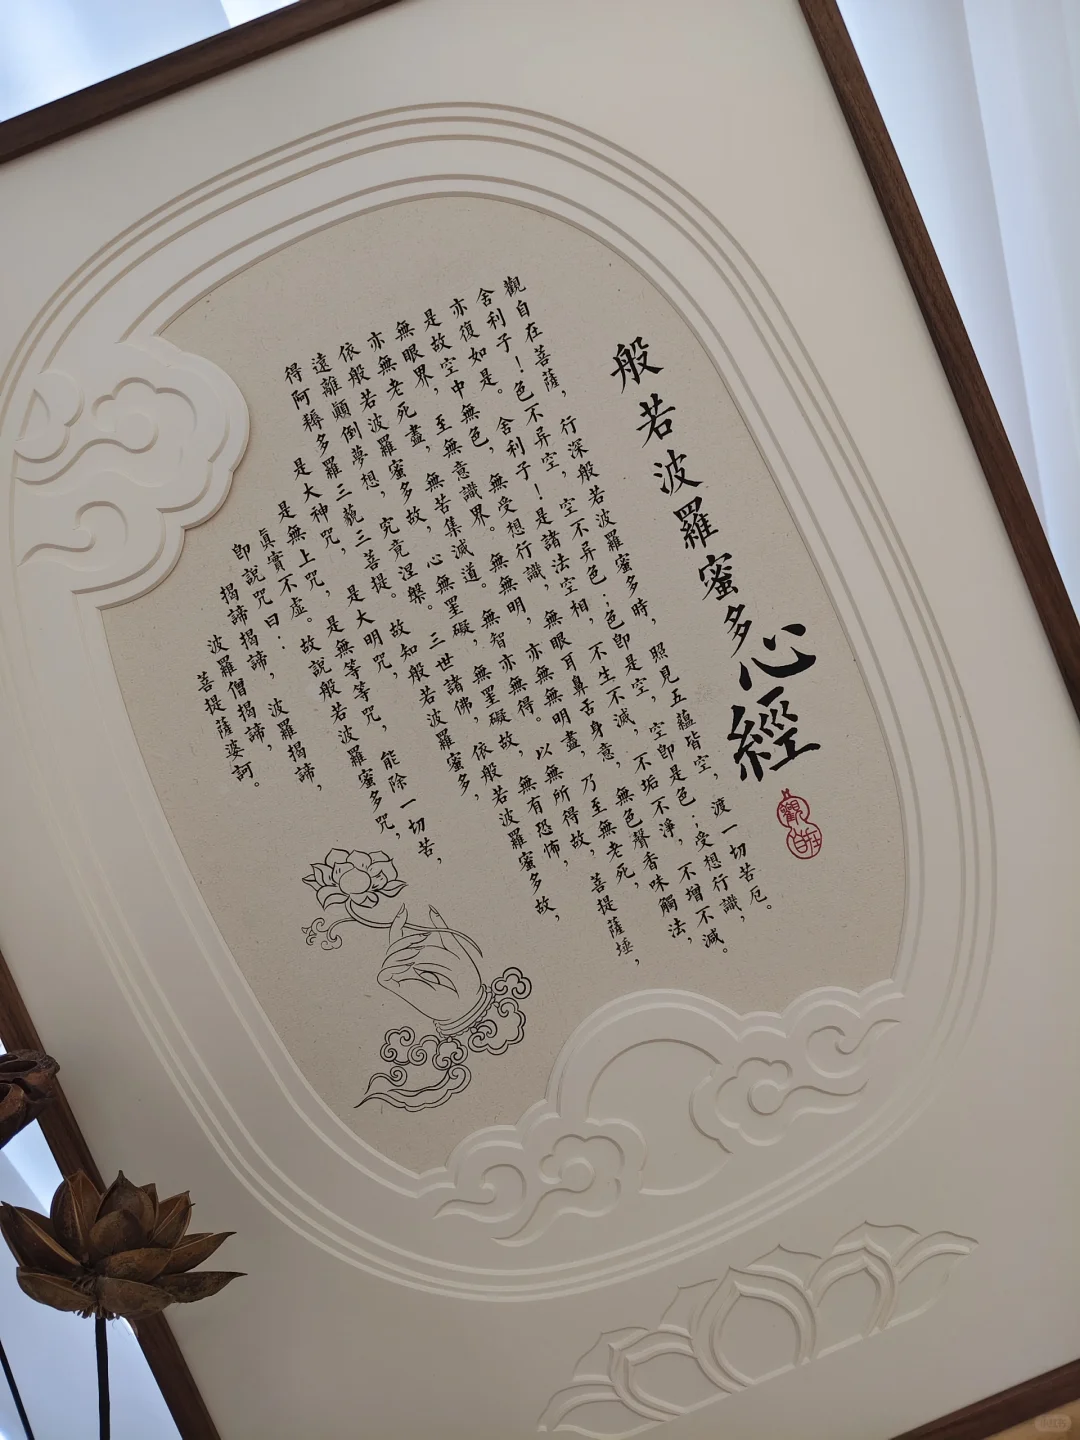 般若波羅蜜多心經
觀自在
觀自在菩薩，行深般若波羅蜜多時，照見五蘊皆空，渡一切苦厄。
舍利子！色不异空，空不异色；色即是空，空即是色；受想行識，
亦復如是。舍利子！是諸法空相，不生不滅，不垢不淨，不增不減。
是故空中無色，無受想行識，無眼耳鼻舌身意，無色聲香味觸法，
無眼界，至無意識界。無無明，亦無無明盡，乃至無老死，
亦無老死盡，無苦集滅道。無智亦無得。以無所得故，菩提薩埵，
依般若波羅蜜多故，心無罣礙，無罣礙故，無有恐怖，
遠離顛倒夢想，究竟涅槃。三世諸佛，依般若波羅蜜多故，
得阿耨多羅三藐三菩提。故知般若波羅蜜多，
是大神咒，是大明咒，
是無上咒，是無等等咒，能除一切苦，
眞實不虛。故說般若波羅蜜多咒，
即說咒曰：
揭諦揭諦，波羅揭諦，
波羅僧揭諦，
菩提薩婆訶。